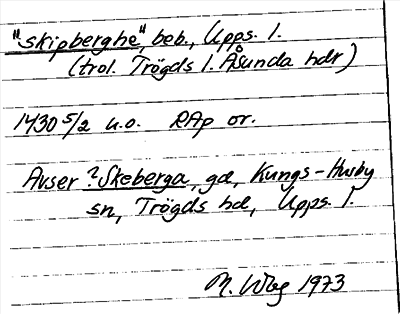 "skipberghe", beb., Upps. l.
(trol. Trögds l. Åsunda hdr)
1430 5/2 u.o. RAp or.
Avser ?Skeberga, gd, Kungs-Husby
sn, Trögds hd, Upps. l.
M. Wbg 1973